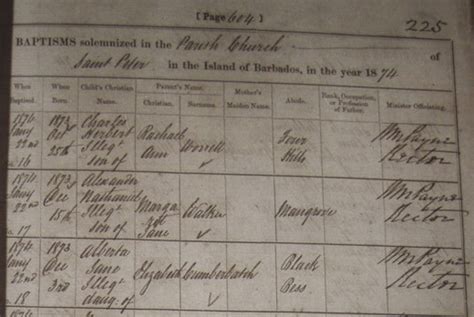 [ Page 604 ]
225
BAPTISMS solemnized in the Parish Church of
Saint Peter in the Island of Barbados, in the year 1874
When Baptized. When Born. Child's Christian Name. Parent's Name. Christian. Surname. Mother's Maiden Name. Abode. Rank, Occupation, or Profession of Father. Minister Officiating.
1874 1873 Charles
Jany Oct Herbert Rachael Worrell Four Wm Payne
22nd 25th Illegt Ann Hills Rector
No. 16 son of
1874 1873 Alexander
Jany Dec Nathaniel Marga Walker Mangrove Wm Payne
22nd 15th Illegt ret Jane Rector
No. 17 son of
1874 1873 Alberta
Jany Dec Jane Elizabeth Cumberbatch Black Wm Payne
22nd 3rd Illegt Bess Rector
No. 18 daug. of